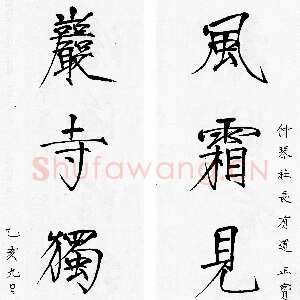 仲琴社長有道正寶
風霜見
巖寺獨
乙亥九呂
Shufawang.CN